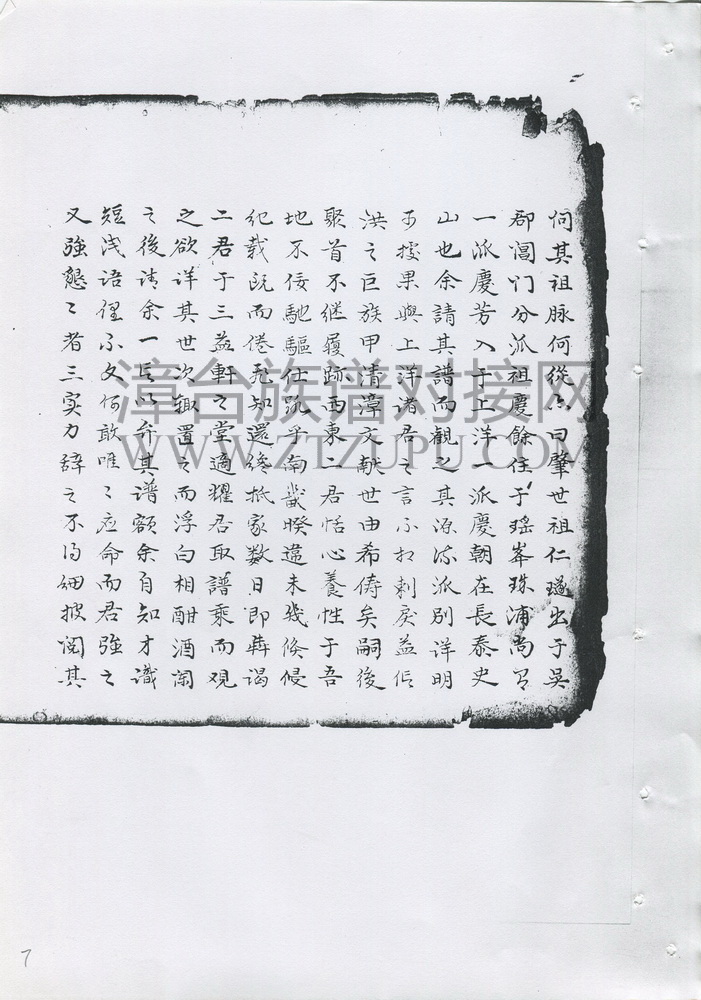 伺其祖脉何從亦曰肇世祖仁璲出于吳
郡閶門分派祖慶餘住于瑶峯珠浦尚有
一派慶芳入于上洋一派慶朝在長泰史
山也余請其譜而觀之其源流派別詳明
可據果與上洋诸君之言不相剌戾益信
洪之巨族甲清漳文献世由希俦矣嗣後
聚首不继履跡西東二君恬心養性于吾
地不佞馳驅仕路于南畿暌違未幾倏侵
纪载既而倦飛知還纔抵家数日即犇谒
二君于三益軒之堂適耀君取譜乘而观
之欲详其世次辄置之而浮白相酣酒闌
之後请余一言以弁其谱额余自知才識
短浅语俚不文何敢唯〻应命而君强之
又强懇〻者三实力辞之不得細披阅其
漳台族谱对接网
WWW.ZTZUPU.COM
7